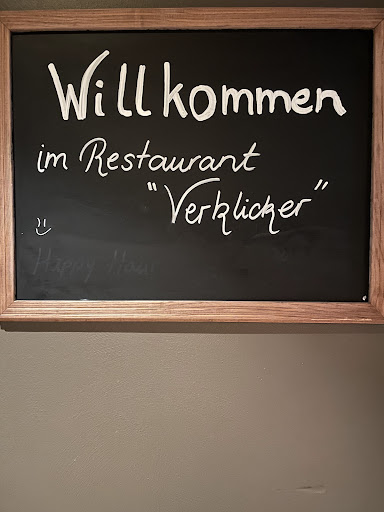 Willkommen
im Restaurant
"Verklicker"
:)
Happy